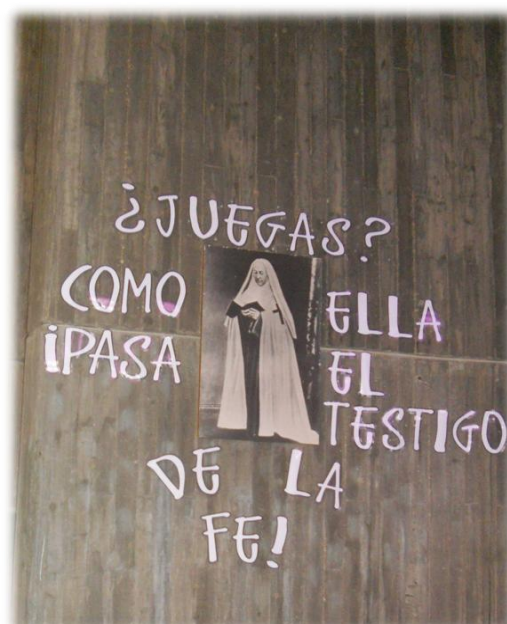 ¿JUEGAS?
COMO ELLA
¡PASA EL
TESTIGO
DE LA
FE!